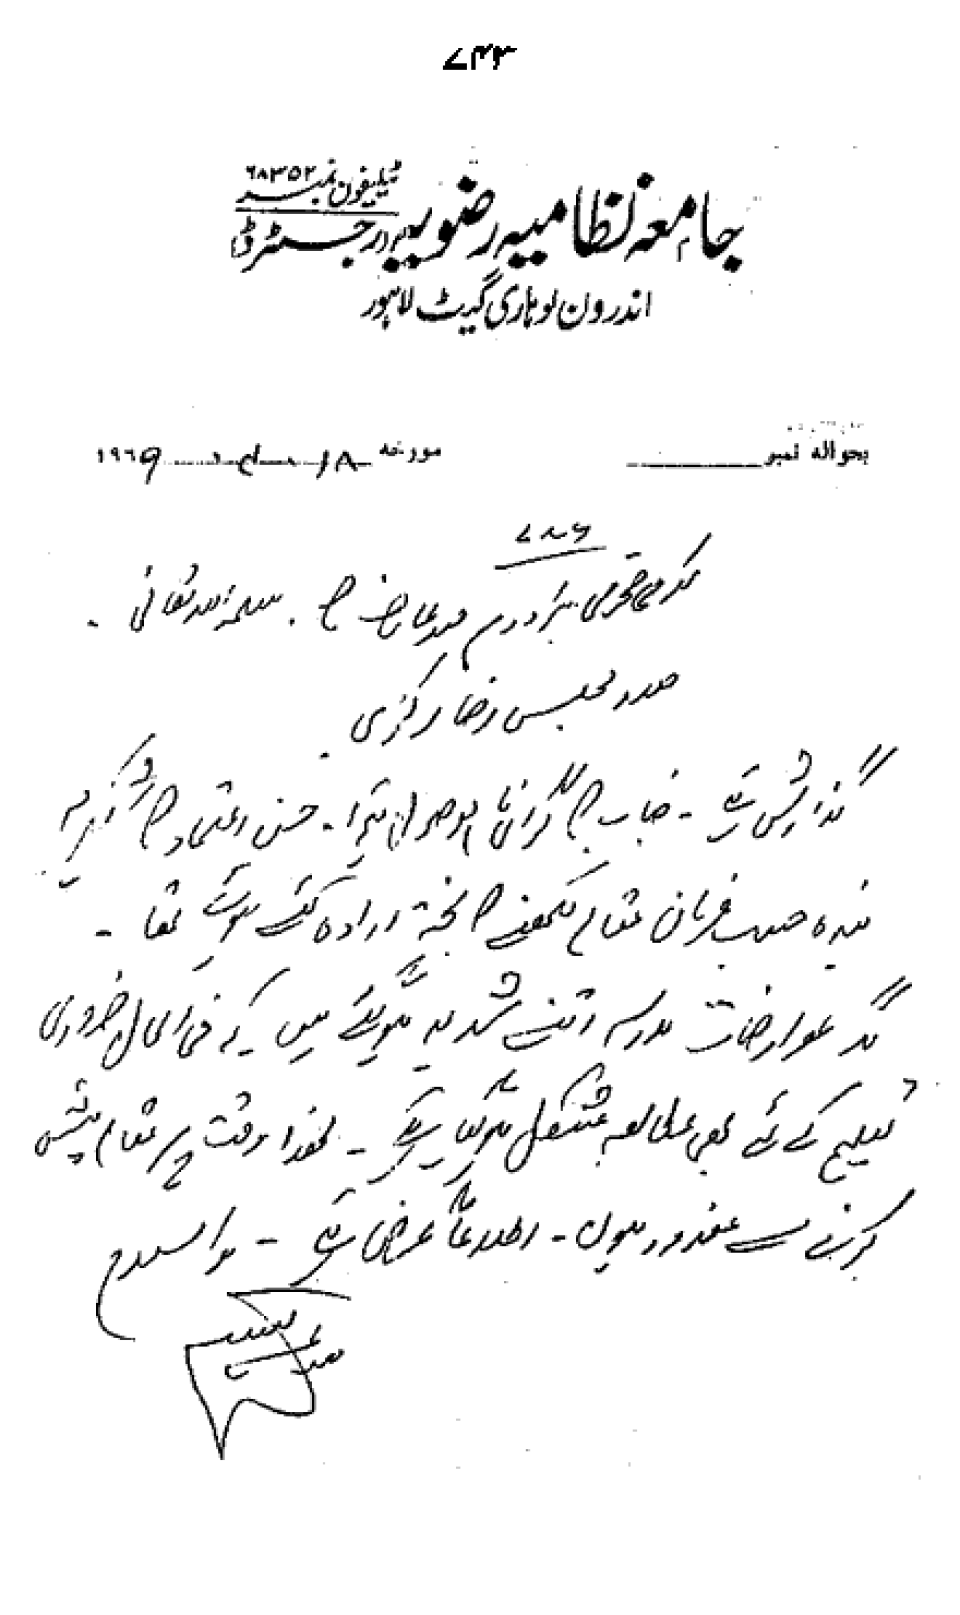 ۷۴۳
ٹیلیفون نمبر ۶۸۳۵۲
جامعہ نظامیہ رضویہ (رجسٹرڈ)
اندرون لوہاری گیٹ لاہور
بحوالہ نمبر
مورخہ ۱۸ ۱۹۶۹
۷۸۶
مکرمی محترمی برادرم سلمہ اللہ تعالیٰ ۔
صدر مجلس رضا مرکزی
گذارش ہے ۔ جناب کا گرامی نامہ موصول ہوا ۔ حسن اعتماد کا شکریہ
بندہ حسب فرمان مقالہ لکھنے کا پختہ ارادہ کئے ہوئے تھا ۔
مگر عوارضات مدرسہ اتنے شدید ہوگئے ہیں کہ فی الحال ضروری
تبلیغ کے لئے بھی مطالعہ مشکل ہوگیا ہے ۔ لہذا وقت پر مقالہ پیش
کرنے سے معذور ہوں ۔ اطلاعاً عرض ہے ۔ والسلام